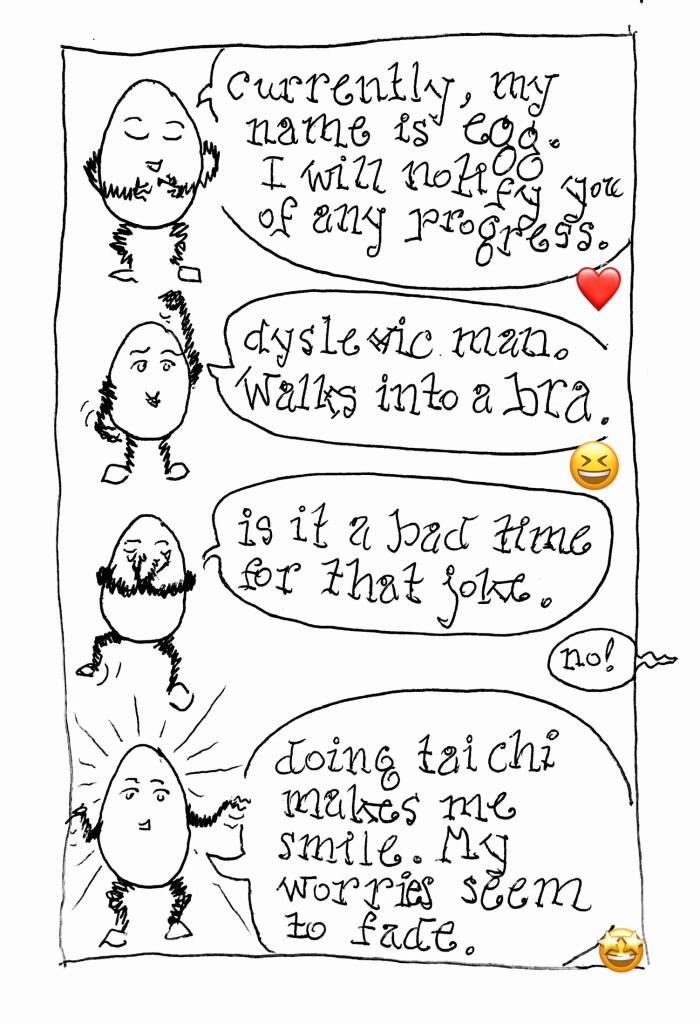 currently, my
name is egg.
I will notify you
of any progress.
dyslexic man.
Walks into a bra.
is it a bad time
for that joke.
no!
doing tai chi
makes me
smile. My
worries seem
to fade.